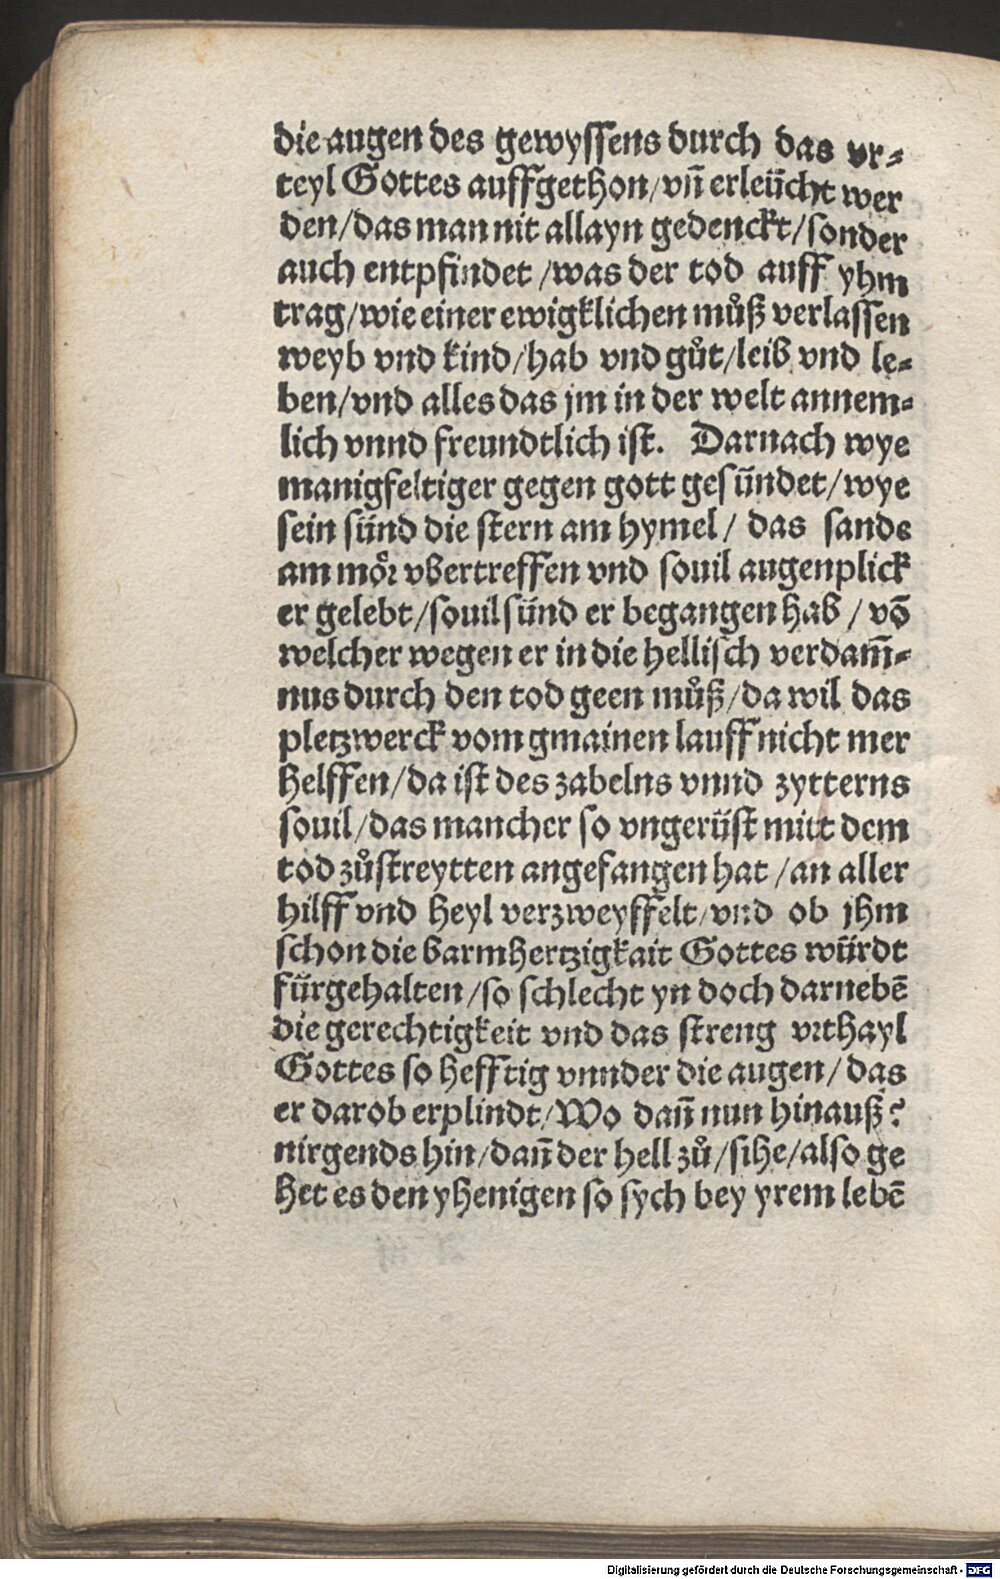 die augen des gewyssens durch das vr⸗
teyl Gottes auffgethon/vn̄ erleücht wer
den/das man nit allayn gedenckt/sonder
auch entpfindet /was der tod auff yhm
trag/wie einer ewigklichen můß verlassen
weyb vnd kind/hab vnd gůt/leib vnd le⸗
ben/vnd alles das jm in der welt annem⸗
lich vnnd freundtlich ist. Darnach wye
manigfeltiger gegen gott gesündet/wye
sein sünd die stern am hymel/ das sands
am möꝛ vbertreffen vnd souil augenplick
er gelebt/souil sünd er begangen hab / vō
welcher wegen er in die hellisch verdam̄⸗
nus durch den tod geen můß/da wil das
pletzwerck vom gmainen lauff nicht mer
helffen/da ist des zabelns vnnd zytterns
souil/das mancher so vngerüst mitt dem
tod zůstreytten angefangen hat /an aller
hilff vnd heyl verzweyffelt/vnd ob jhm
schon die barmhertzigkait Gottes würdt
fürgehalten/so schlecht yn doch darnebē
die gerechtigkeit vnd das streng vꝛthayl
Gottes so hefftig vnnder die augen/ das
er darob erplindt/Wo dan̄ nun hinauß?
nirgends hin/dan̄ der hell zů/sihe/also ge
het es den yhenigen so sych bey yrem lebē
Digitalisierung gefördert durch die Deutsche Forschungsgemeinschaft - DFG